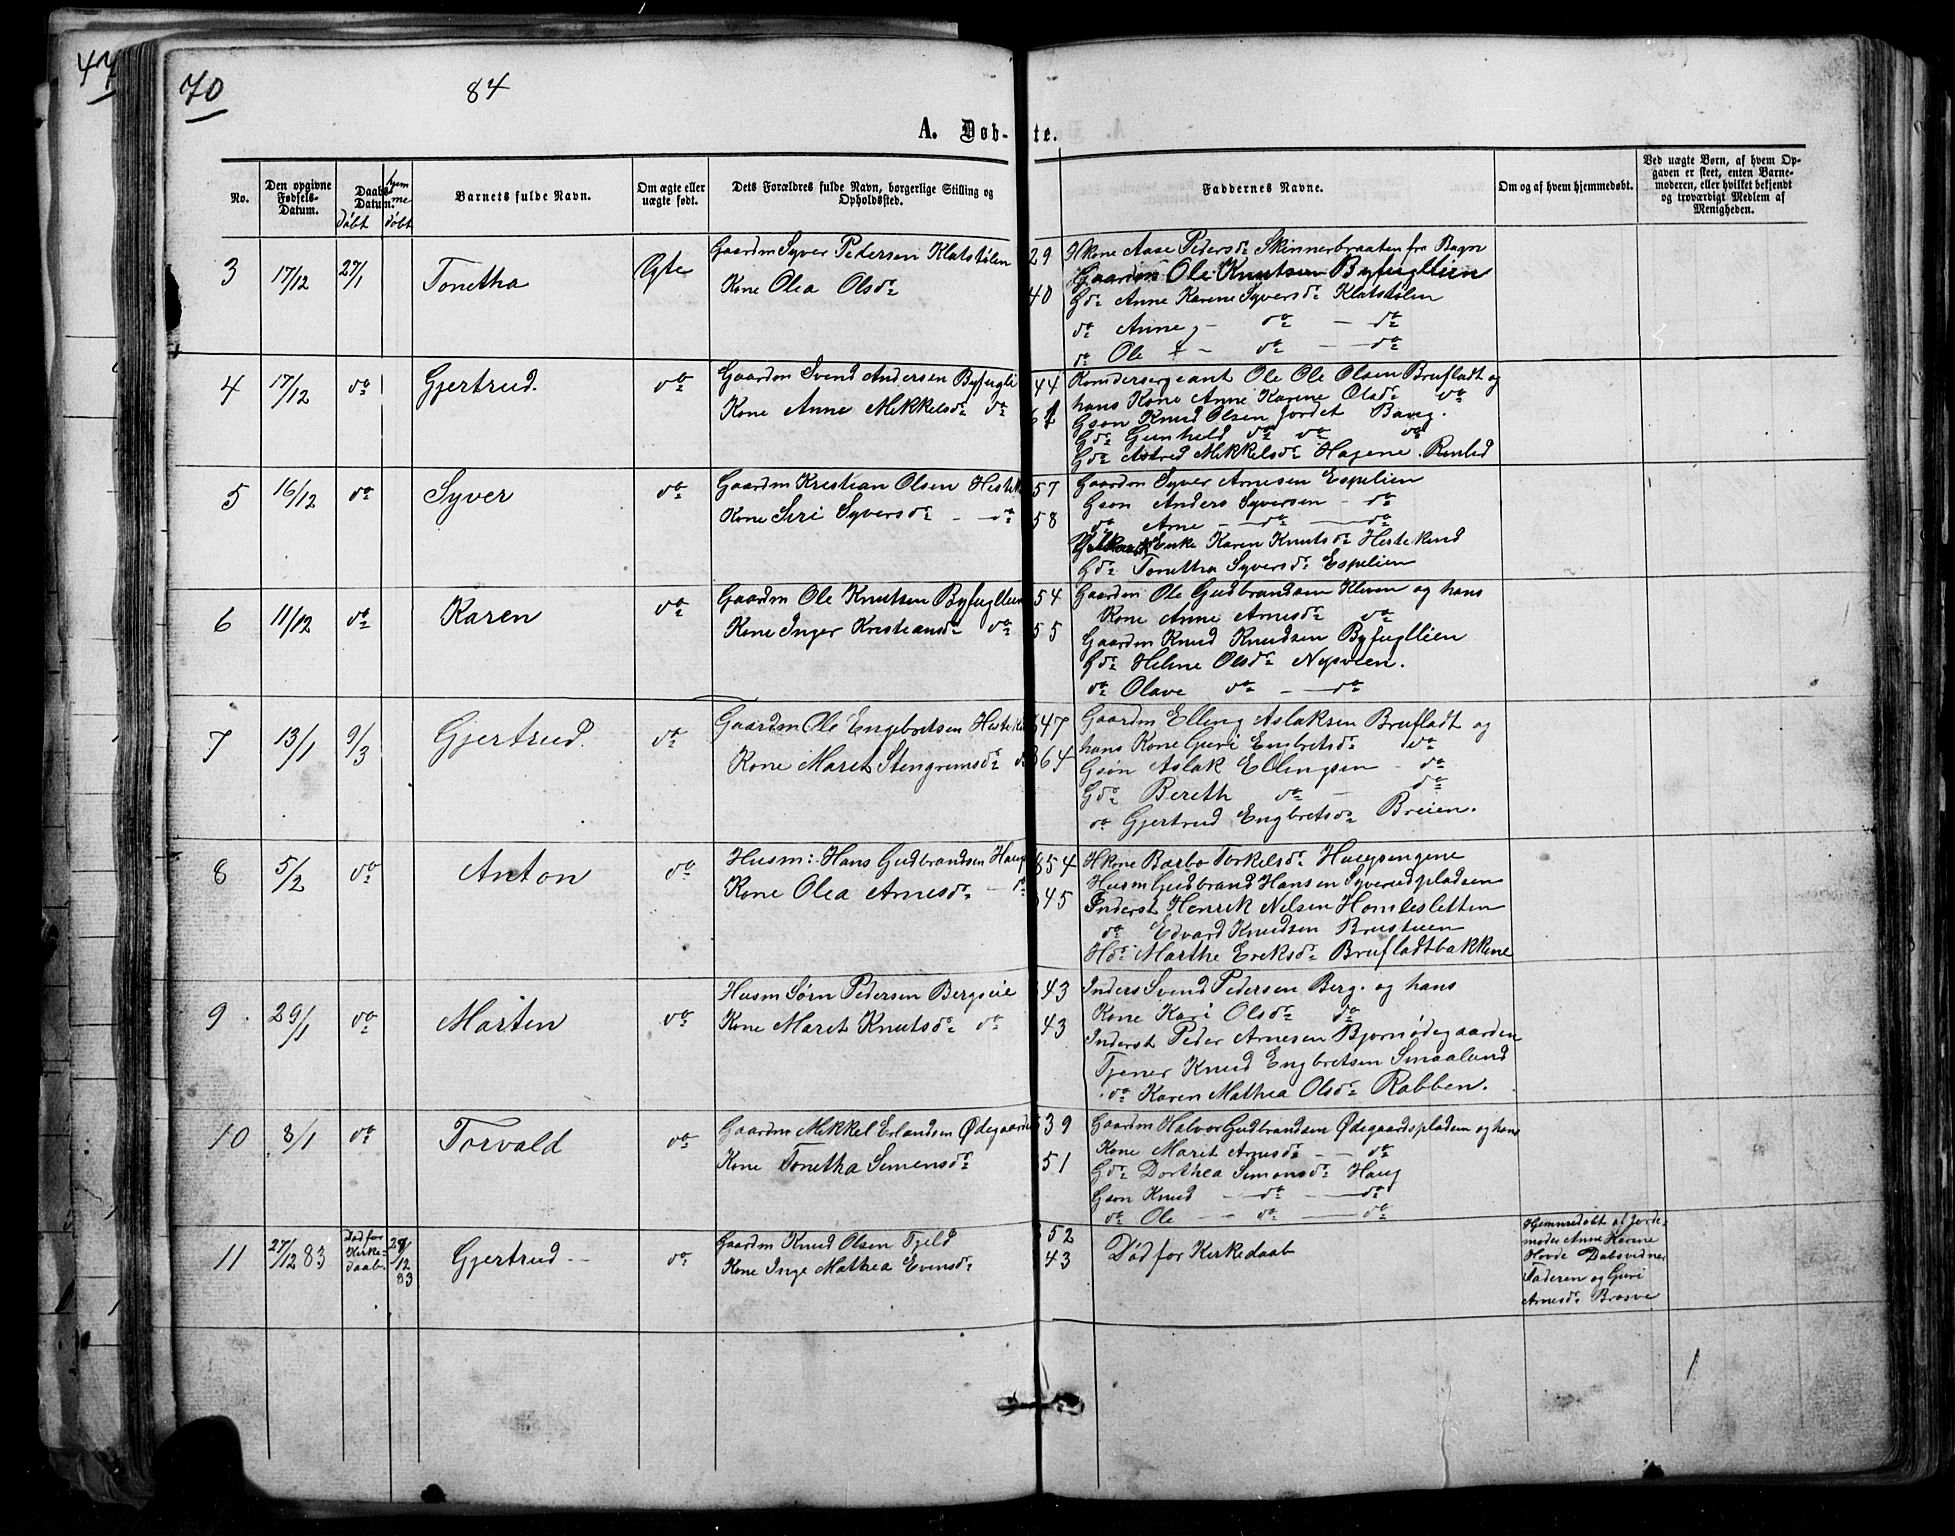 44
70
84
A. Døb-
te.
No.
Den opgivne Fødsels-Datum.
Daabs-Datum.
døbt
hjemme døbt
Barnets fulde Navn.
Om ægte eller uægte født.
Dets Forældres fulde Navn, borgerlige Stilling og Opholdssted.
Faddernes Navne.
Om og af hvem hjemmedøbt.
Ved uægte Børn, af hvem Opgaven er skeet, enten Barnemoderen, eller hvilket bekjendt og troværdigt Medlem af Menigheden.
3 17/12 27/1 Tonetha Ægte
Gaardm Syver Pedersen Klatstølen 29
Kone Olea Olsdr 40
Hkone Aase Pedersdr Skinnerbraaten fra Bagn
Gaardm Ole Knutsen Byfugllien
Gdr Anne Karene Syversdr Klatstølen
do Anne do do
do Ole do do
4 17/12 do Gjertrud. do
Gaardm Svend Andersen Byfugli 44
Kone Anne Mikkelsdr do
Komdersergeant Ole Ole Olsen Brufladt og
hans Kone Anne Karene Olsdr do
Gson Knud Olsen Jordet Bang.
Gdr Gunhild do do do
Gdr Astred Mikkelsdr Hagene
5 16/12 do Syver do
Gaardm Kristian Olsen Hestek 57
Kone Siri Syversdr do 58
Gaardm Syver Arnesen Espelien
Gson Anders Syversen do
do Arne do do
Enke Karen Knutsdr Hestekind
Gdr Tonetha Syversdr Espelien
6 11/12 do Karen do
Gaardm Ole Knutsen Byfugllien 54
Kone Inger Kristiansdr do 55
Gaardm Ole Gudbrandsen Kleven og hans
Kone Anne Arnesdr do
Gaardm Knud Knudsen Byfugllien
Gdr Helene Olsdr Nysveen.
do Olave do do
7 13/1 9/3 Gjertrud. do
Gaardm Ole Engebretsen Hesteki 47
Kone Marit Stengrimsdr do 64
Gaardm Elling Aslaksen Brufladt og
hans Kone Guri Engbretsdr do
Gsøn Aslak Ellingsen do
Gdr Bereth do do
do Gjertrud Engbretsdr Breien.
8 5/2 do Anton do
Husm: Hans Gudbrandsen Haug 854
Kone Olea Arnesdr do 45
Hkone Barbo Torkelsdr Haugsengene
Husm Gudbrand Hansen Syverudpladsen
Inderst Henrik Nilsen Homlesletten
do Edvard Knudsen Brustuen
Hdr Marthe Ereksdr Brufladtbakkene
9 29/1 do Marten do
Husm Sørn Pedersen Bergseie 43
Kone Marit Knutsdr do 43
Inders Svend Pedersen Berg. og hans
Kone Kari Olsdr do
Inderst Peder Arnesen Bjornødegaarden
Tjener Knud Engbretsen Smaalund
do Karen Mathea Olsdr Rabben.
10 8/1 do Torvald do
Gaardm Mikkel Erlandsen Ødegaarde 39
Kone Tonetha Simensdr 51
Gaardm Halvor Gudbrandsen Ødegaardspladsen og hans
Kone Marit Arnesdr do
Gdr Dorthea Simonsdr Haug
Gson Knud do do
do Ole do do
11 27/12 83 Død for Kirkedaab 29/12 83 Gjertrud do
Gaardm Knud Olsen Fjeld 52
Kone Inge Mathea Evensdr 43
Død for Kirkedaab
Hjemmedøbt af Jorde-
moder Anne Karine
Hovde Dabsvidner
Faderen og Guri
Arnesdr Brosve
1